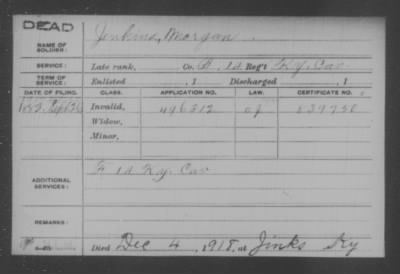 DEAD
NAME OF SOLDIER: Jenkins, Morgan
SERVICE: Late rank, Co. B, 1st Reg't Ky. Cav.
TERM OF SERVICE: Enlisted , 1 Discharged , 1
DATE OF FILING. CLASS. APPLICATION NO. LAW. CERTIFICATE NO.
Invalid, 496312
Widow,
Minor,
ADDITIONAL SERVICES: F 1st Ky. Cav
REMARKS:
Died Dec 4, 1918, at Jinks Ky